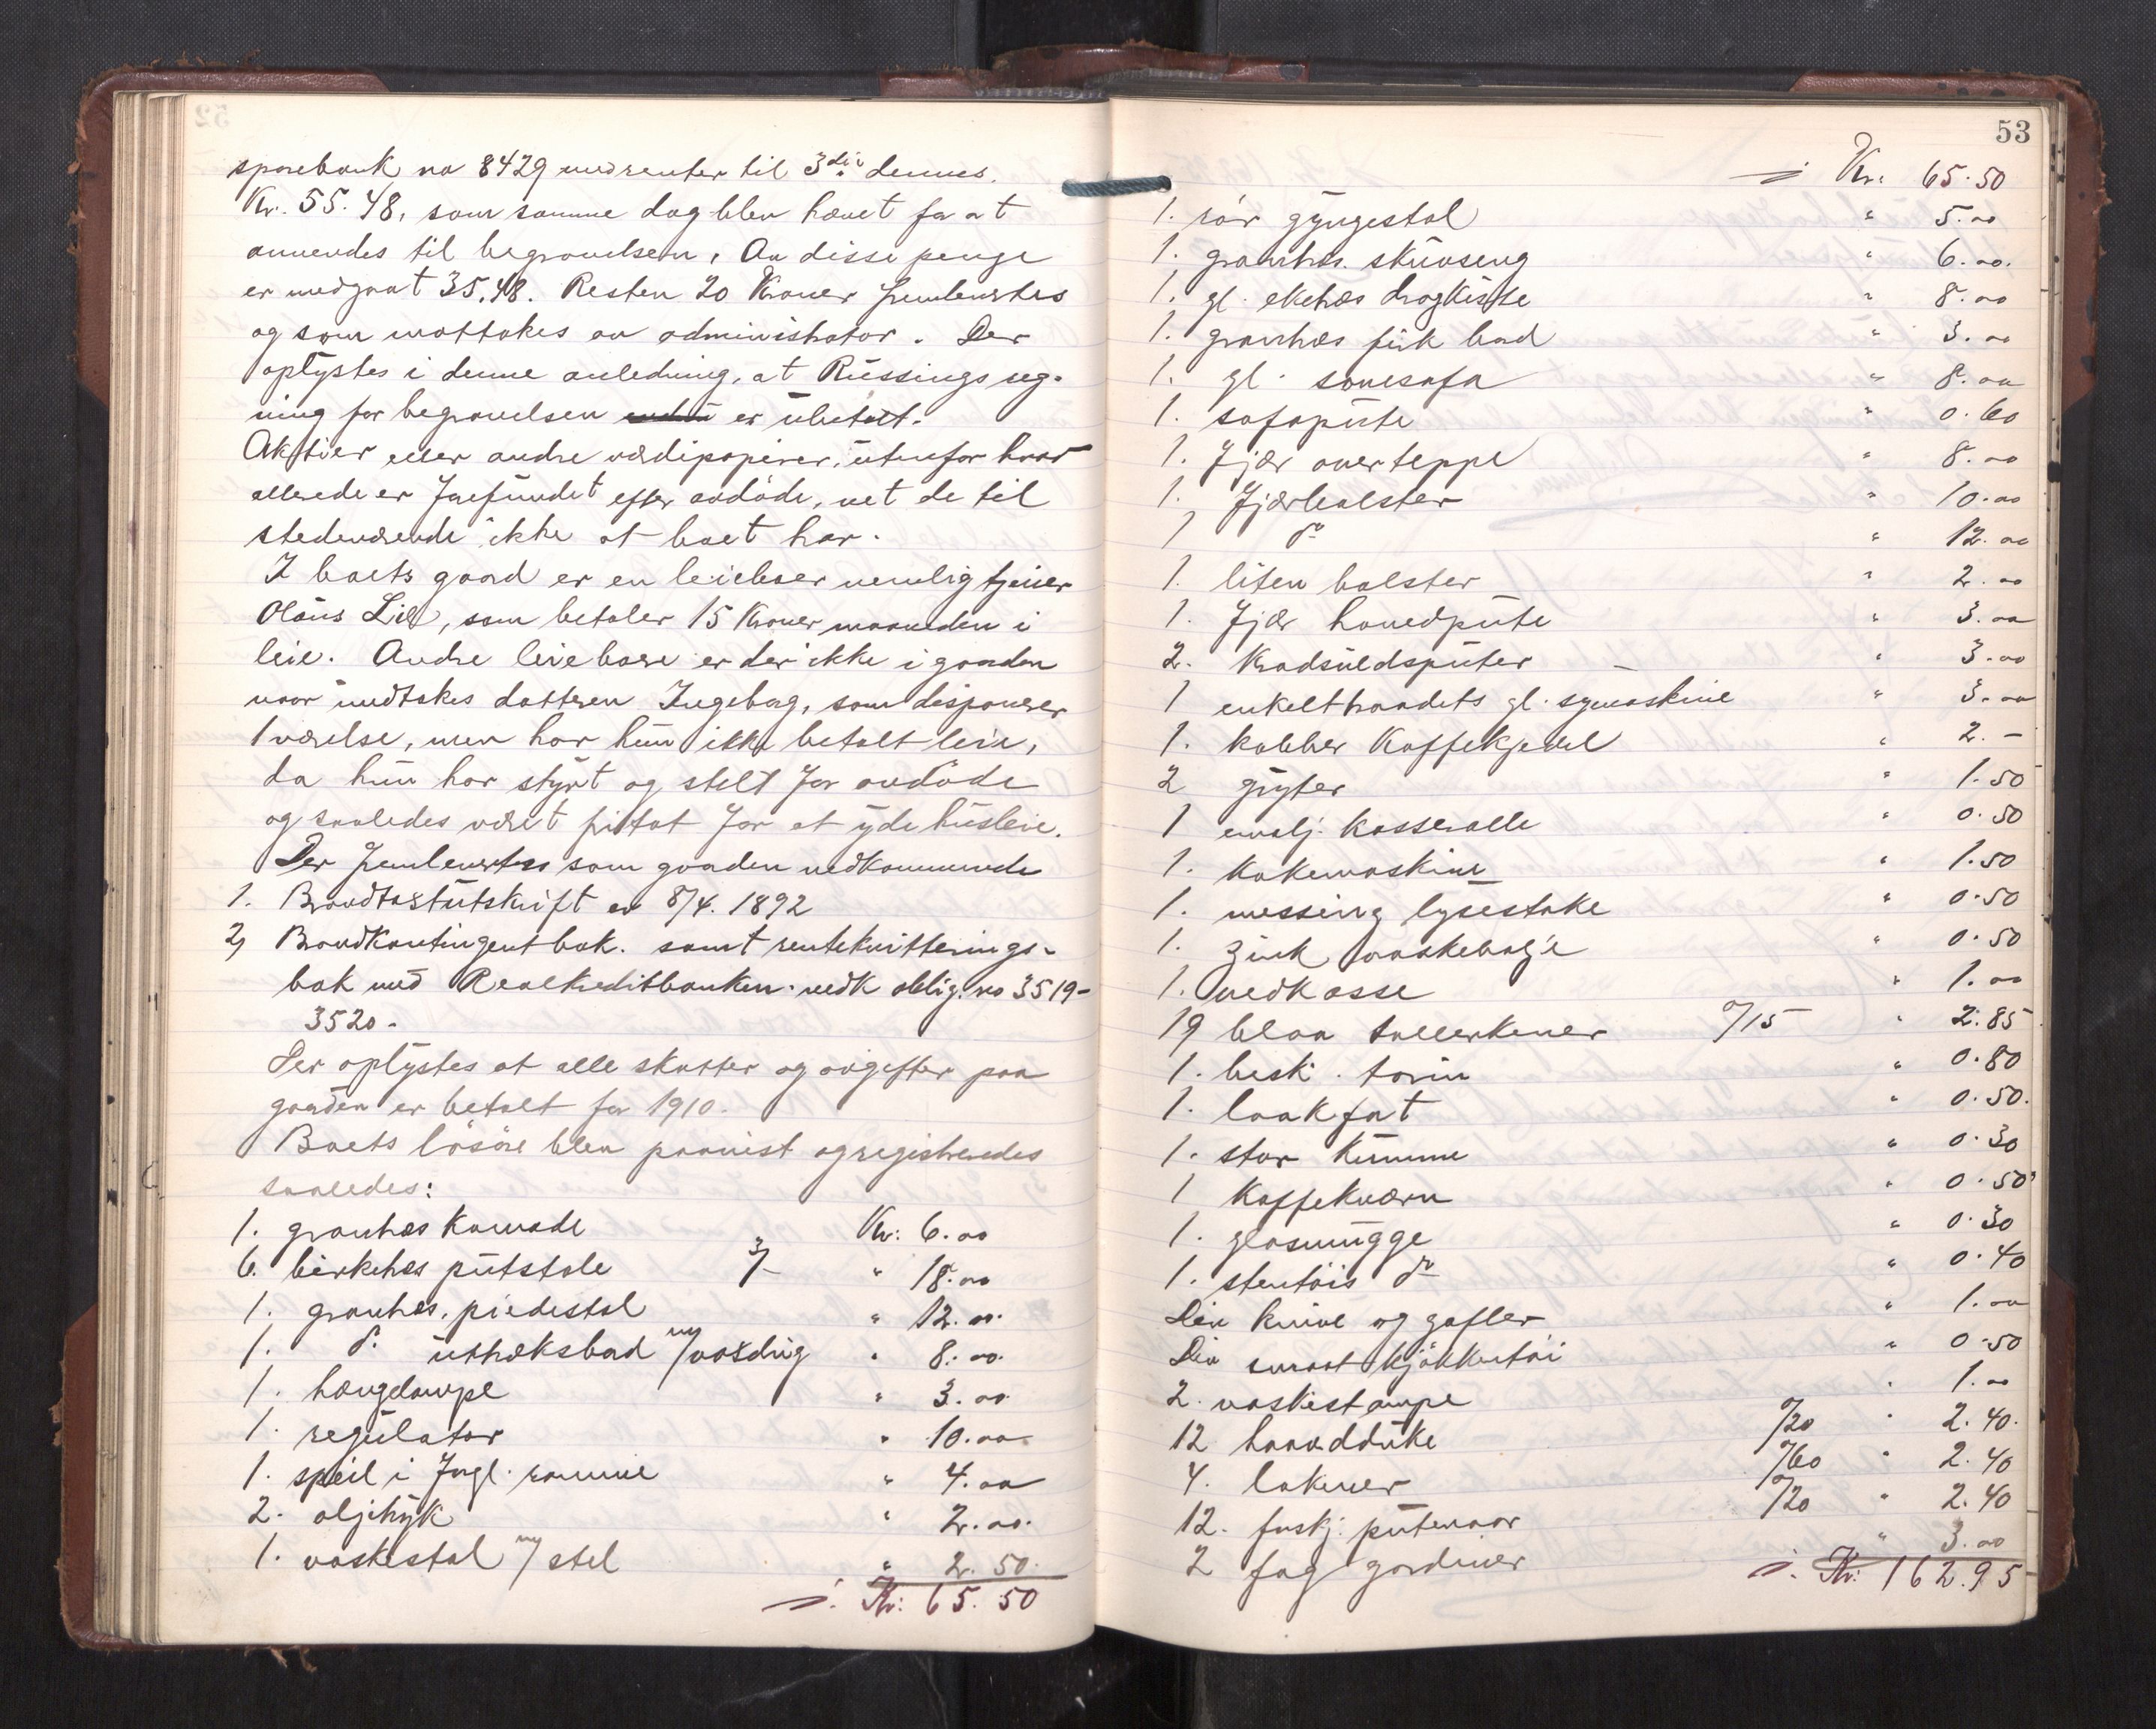 sparebank no 8429 med renter til 3die dennes.
Kr. 55.48, som samme dag blev hævet for at
anvendes til begravelsen. Av disse penge
er medgaat 35,48. Resten 20 Kroner fremlevertes
og som mottokes av administrator. Der
oplystes i denne anledning, at Rüssings reg-
ning for begravelsen er übetalt.
Aktier eller andre værdipapirer, utenfor hvad
allerede er forefündet efter avdöde, vet de til
stedeværende ikke at boet har.
I boets gaard er en leieboer nemlig
Olaus Lie, som betaler 15 Kroner maaneden i
leie. Andre leieboere er der ikke i gaarden
naar undtakes datteren Ingeborg, som disponerer
1 værelse, men har hün ikke betalt leie,
da hün har styrt og stelt for avdöde
og saaledes været fritat for at yde hüsleie.
Der fremlevertes som gaarden vedkommende
1. Brandtakstütskrift av 8/4. 1892
2, Brandkontingentbok. samt rentekvitterings-
bok med Realkreditbanken. vedk oblig. no 3519-
3520.
Der oplystes at alle skatter og avgifter paa
gaarden er betalt for 1910.
Boets lösöre blev paavist og registreredes
saaledes:
1. granhæs Komode Kr: 6.00
6. birkehæs pütstole 3/- " 18.00
1. granhæs. piedestal " 12.00.
1. do üttræksbord m/voksdug " 8.00.
1. hængelampe " 3.00.
1. regülator " 10.00
1. speil i forgl. ramme " 4.00
2. oljetryk " 2.00.
1. vaskestol m/ stel " 2.50.
Kr: 65.50
53
Kr: 65.50
1. rör gyngestol " 5.00
1. granhæs. sküvseng " 6.00.
1. gl. ekehæs dragkiste " 8.00
1. granhæs firk bord " 3.00
1. gl. sovesofa " 8.00
1. sofapüte " 0.60
1. Fjær overteppe " 8.00
1. Fjærbolster " 10.00
1 do " 12.00
1. liten bolster " 2.00
1. Fjær hovedpüte " 3.00
2. Kradsüldspüter " 3.00
1 enkelttraadets gl. symaskine " 3.00
1. kobber Kaffekjedel " 2.-
2 gryter " 1.50
1 emalj. Kasserolle " 0.50
1. Kokemaskine " 1.50
1. messing lysestake " 0.50
1. zink vaskebalje " 0.50
1. vedkasse " 1.00
19 blaa tallerkener a/15 " 2.85
1. besk. terin " 0.80
1. laakfat " 0.50.
1. stor Kümme " 0.30
1 Kaffekværn " 0.50
1. glasmügge " 0.30
1. stentöis do " 0.40
Div knive og gafler " 1.00
Div smaat kjökkentöi " 0.50
2. vaskestampe " 1.00
12 haandduke a/20 " 2.40.
4. lakener a/60 " 2.40
12. forskj. pütevaar a/20 " 2.40
2 fag gardiner " 3.00
Kr: 162.95